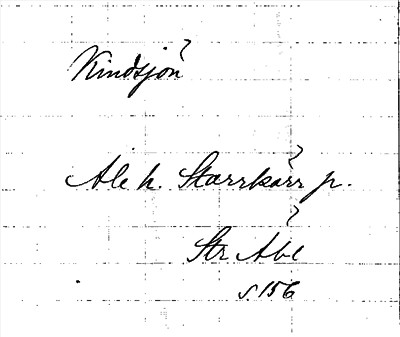 Kindsjön
Ale h. Starrkärr p.
Str Abl
s. 156